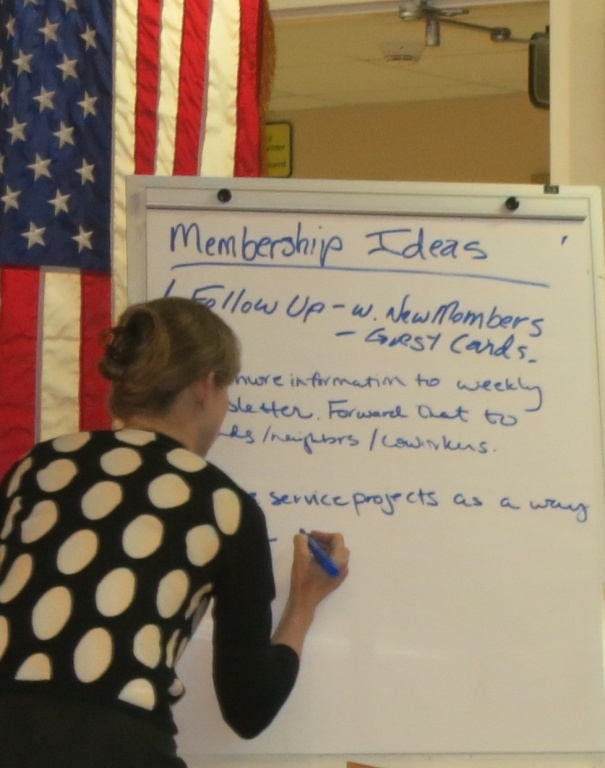 Membership Ideas
1 Follow Up - w. New Members
- Guest Cards.
more information to weekly
sletter. Forward that to
ds/neighbors/coworkers.
service projects as a way